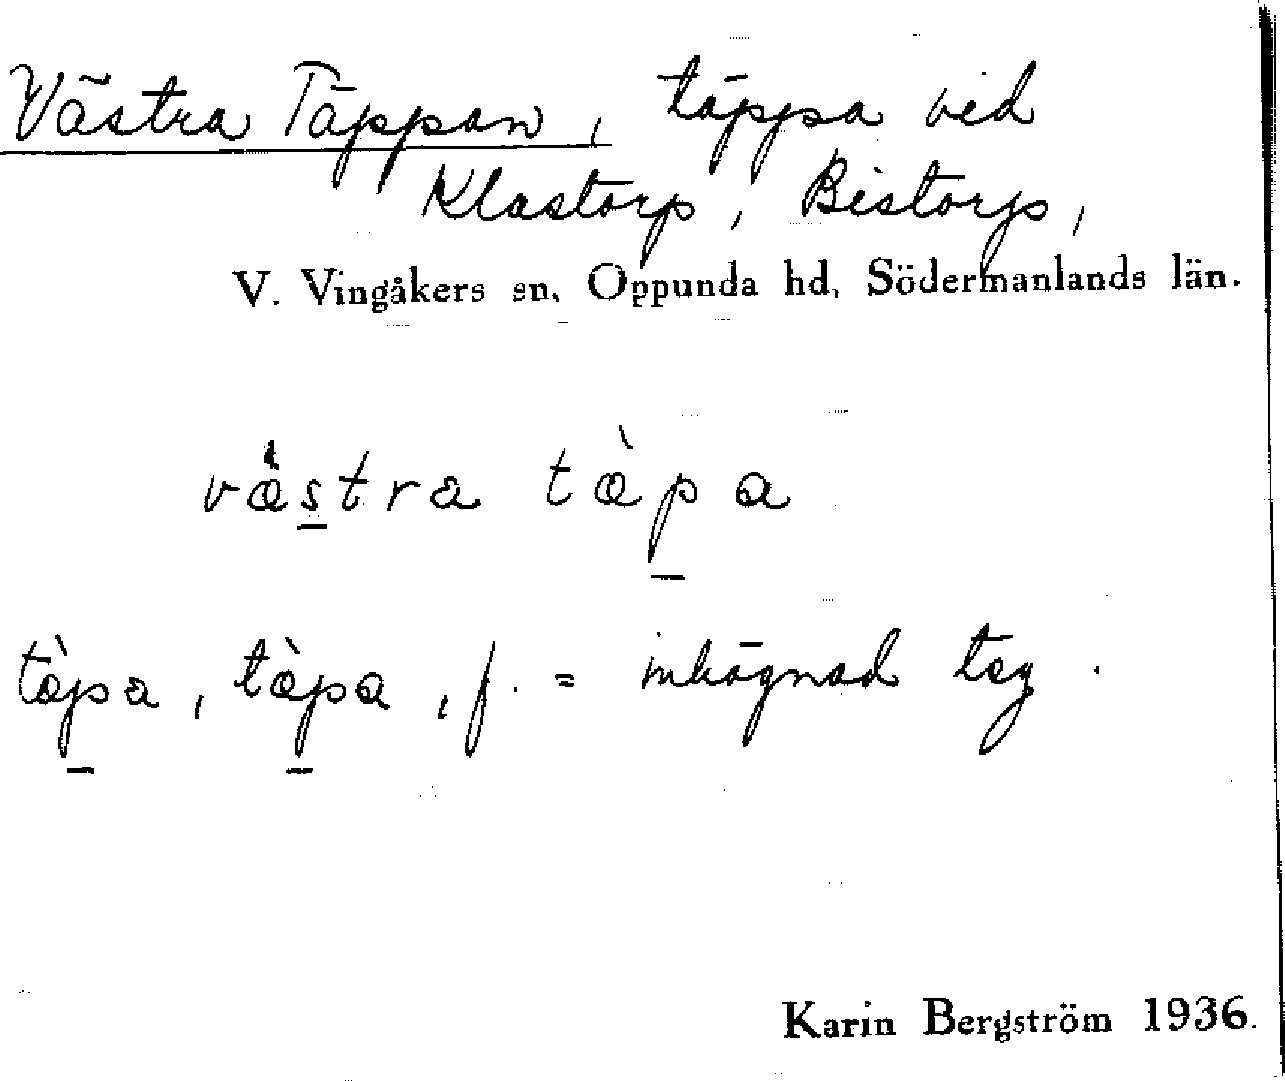 Västra Täppan, täppa ved
Klastorp, Bistorp,
V. Vingåkers sn, Oppunda hd, Södermanlands län.
västra tàpa
tàpa, tàpa, f. = inhägnad teg.
Karin Bergström 1936.